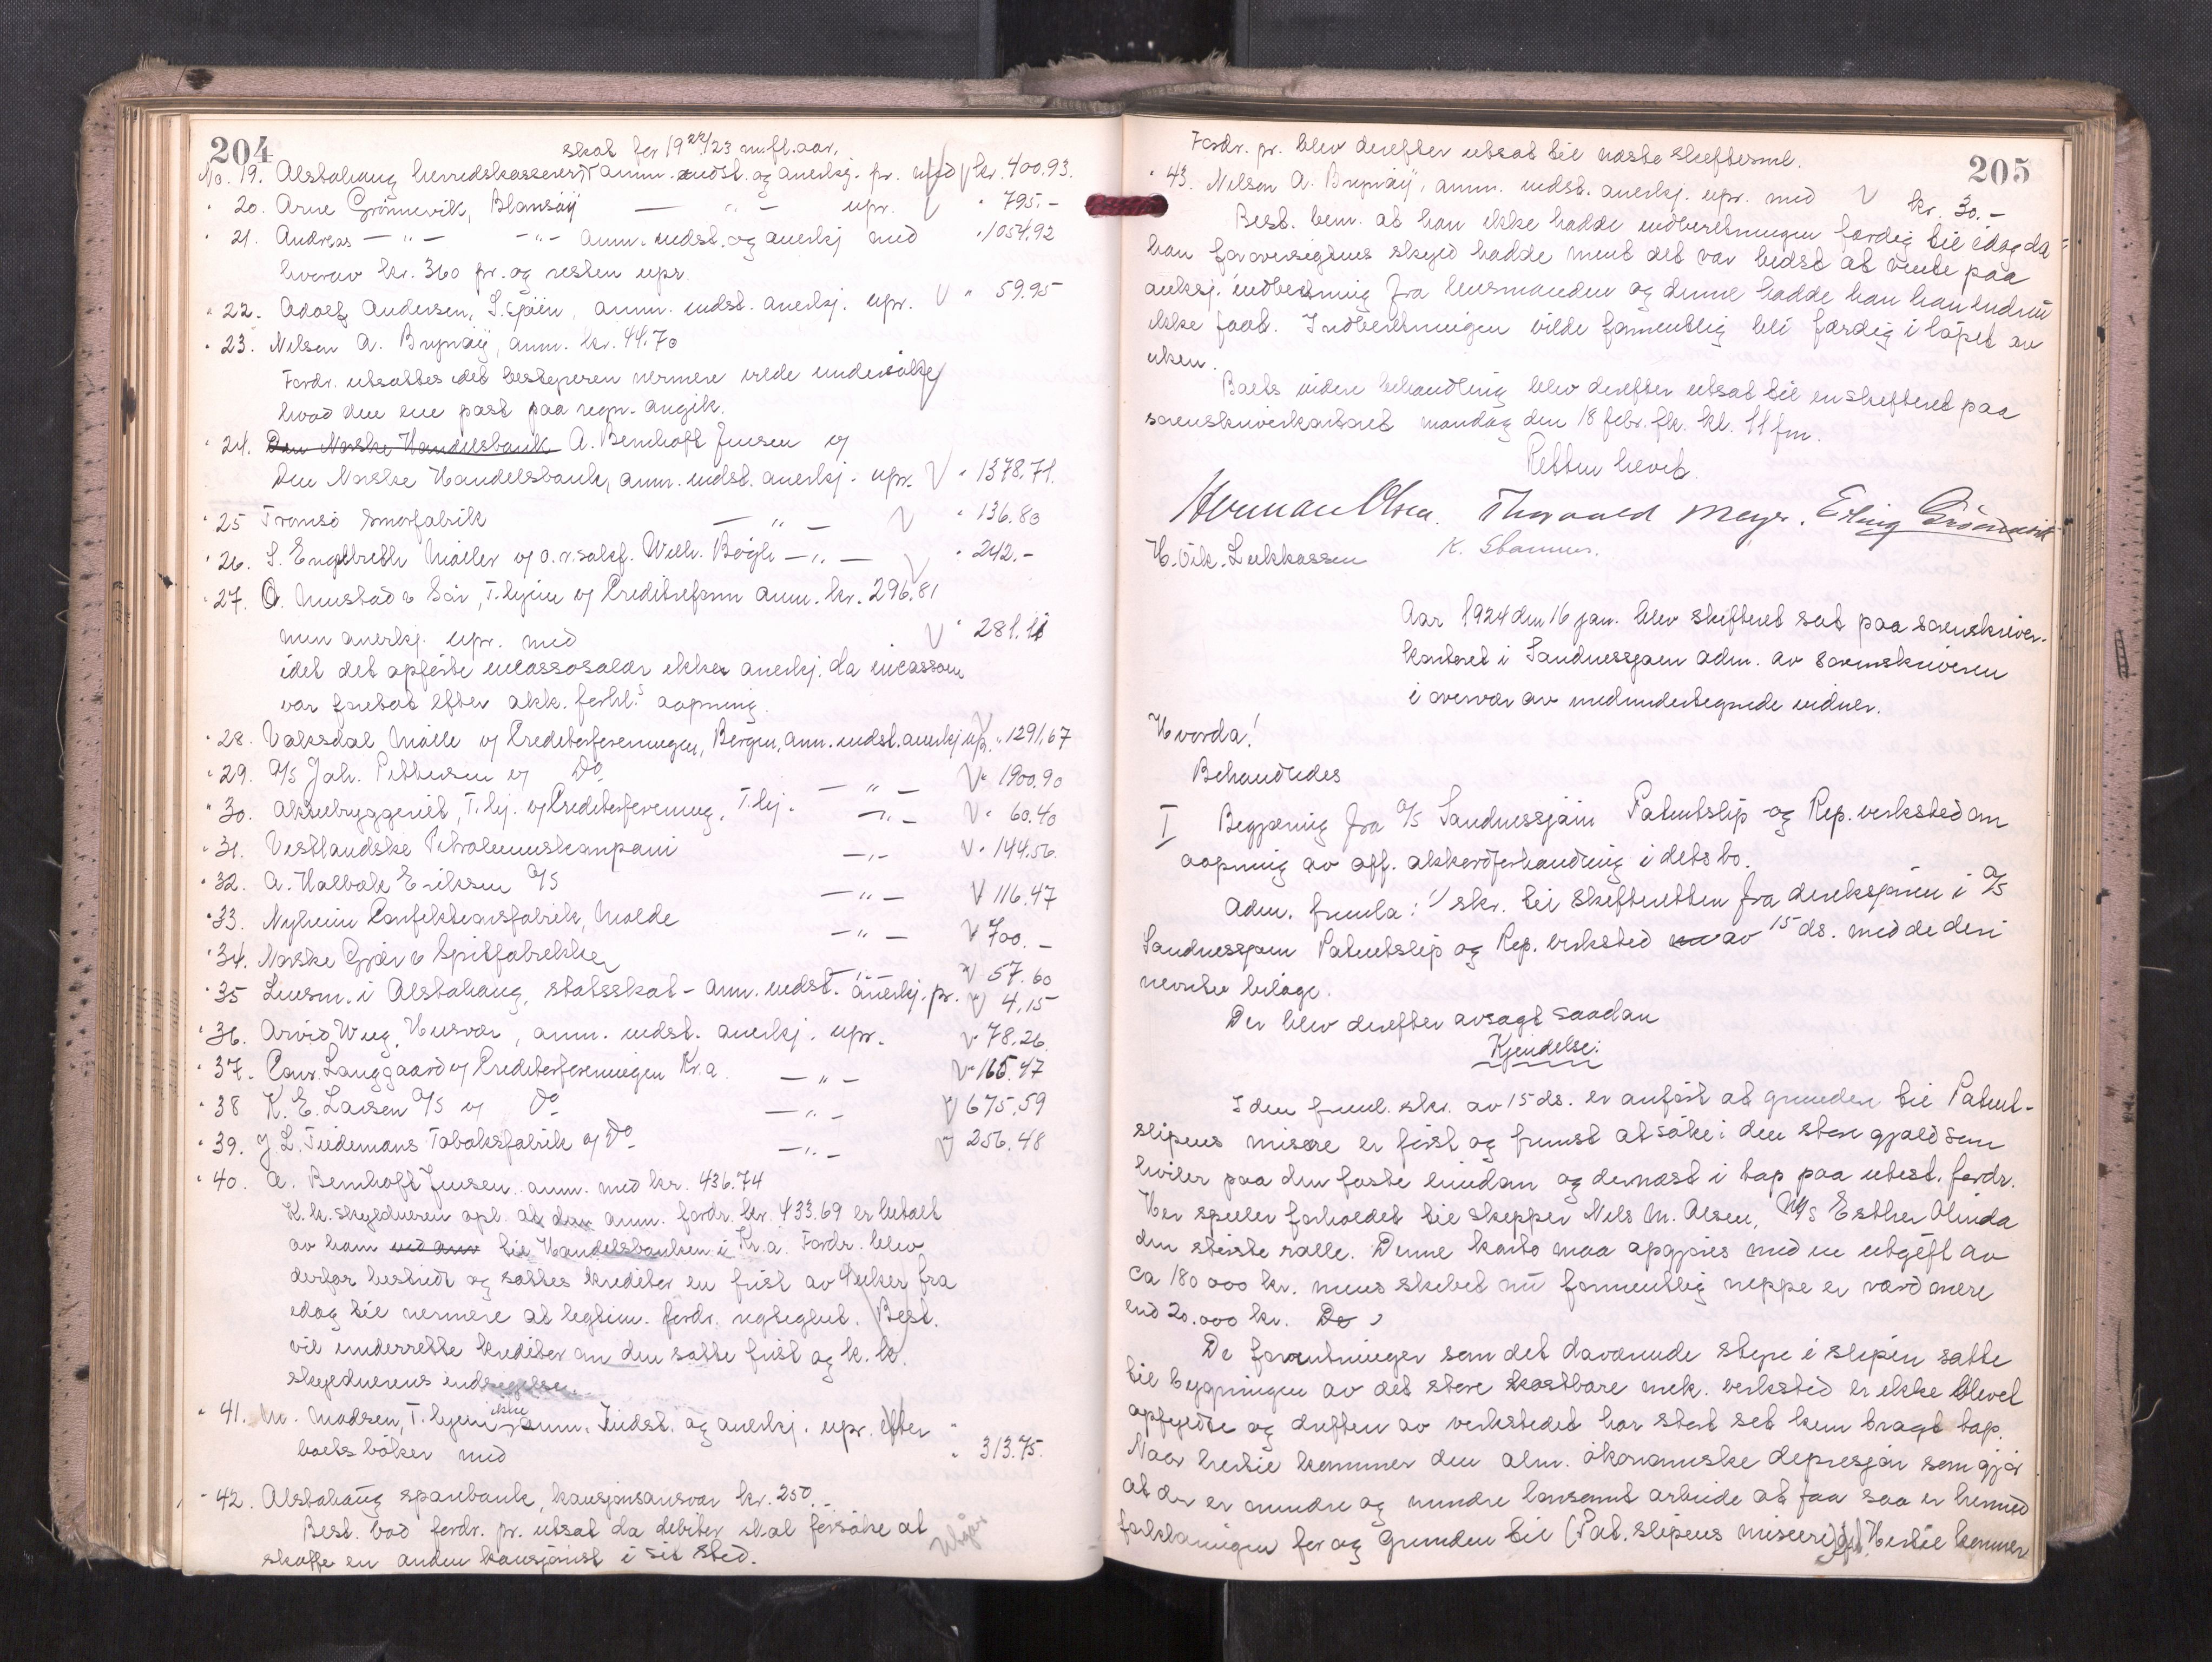 204
skat for 19 22/23 m.fl. aar,
No. 19. Alstahaug herredskasserer anm. indst. og anerkj. pr. med kr. 400.93.
" 20. Arne Grönnevik, Blomsöy — " — upr. " 795.-
" 21. Andreas — " — — " — anm. indst. og anerkj med " 1054.92
hvorav kr. 360 pr. og resten upr.
" 22. Adolf Andersen, S.sjöen, anm. indst. anerkj. upr. " 59.95
" 23. Nelsen A. Brynöy, anm. kr. 44.70
Fordr. utsattes idet bestyreren nærmere vilde undersöke
hvad den ene post paa regn. angik.
" 24. Den Norske Handelsbank A. Bernhoft Jensen og
Den Norske Handelsbank, anm. indst. anerkj. upr. " 1378.71.
" 25 Tromsö Smörfabrik — " — " 136.80
" 26. S. Engelbreth Möller og o.r.sakf. Wilh. Bögh — " — " 242.-
" 27. O. Mustad & Sön, T.hjem og Kreditreform anm. kr. 296.81
men anerkj. upr. med " 281.11
idet det opförte incassosalær ikke anerkj. da incassoen
var foretat efter akk. forhl.s aapning.
" 28. Vaksdal Mölle og Creditorforeningen, Bergen, anm. indst. anerkj upr. " 1291.67
" 29. A/S Joh. Pettersen og Do — " — " 1900.90
" 30. Aktiebryggeriet, T.hj. og Creditorforening, T.hj. — " — " 60.40
" 31. Vestlandske Petroleumskompani — " — " 144.56.
" 32. A. Halbak Eriksen A/S — " — 116.47
" 33. Nyheim Confektionsfabrik, Molde — " — 700.-
" 34. Norske Gjær & Spritfabrikker — " — 57.60
" 35 Lensm. i Alstahaug, statsskat - anm. indst. anerkj. pr. 4.15
" 36. Arvid Wiig, Husvær, anm. indst. anerkj. upr. 78.26.
" 37. Conr. Langgaard og Creditorforeningen Kr.a. — " — 165.47
" 38 K. E. Larsen A/S og Do — " — 675.59
" 39. J. L. Tiedemans Tobaksfabrik og Do — " — 256.48
" 40. A. Bernhoft Jensen anm. med kr. 436.74
K.k. skyldneren opl. at den anm. fordr. kr. 433.69 er betalt
av ham til Handelsbanken i Kr.a. Fordr. blev
derfor bestridt og sattes kreditor en frist av 4 uker fra
idag til nærmere at legtim. fordr. rigtighet. Best.
vil underrette kreditor om den satte frist og k.k.
skyldnerens indsigelse.
" 41. M. Madsen, T.hjem ikke anm. Indst. og anerkj. upr. efter
boets böker med " 313.75.
" 42. Alstahaug sparebank, kausjonsansvar kr. 250.-
Best. bad fordr. pr. utsat da debitor skal forsöke at
skaffe en anden kausjonist i sit sted.
Utgaar
205
Fordr. pr. blev derefter utsat til næste skiftesml.
" 43. Nelsen A. Brynöy, anm. indst. anerkj. upr. med kr. 30.-
Best. bem. at han ikke hadde indberetningen færdig til idag da
han for oversigtens skyld hadde ment det var bedst at vente paa
auksj. indberetning fra lensmanden og denne hadde han endnu
ikke faat. Indberetningen vilde formentlig bli færdig i löpet av
uken.
Boets videre behandling blev derefter utsat til en skifteret paa
sorenskriverkontoret mandag den 18 febr. fk. kl. 11 fm.
Retten hævet.
Herman Olsen. Thorvald Meyer. Erling Grönnevik
H. Vik. Lukkassen K. Stamnes.
Aar 1924 den 16 jan. blev skifteret sat paa sorenskriver-
kontoret i Sandnessjöen adm. av sorenskriveren
i overvær av medundertegnede vidner.
Hvorda!
Behandledes
I Begjæring fra A/S Sandnessjöen Patentslip og Rep. verksted om
aapning av off. akkordforhandling i dets bo.
Adm. fremla: 1/ skr. til Skifteretten fra direksjonen i A/S
Sandnessjöen Patentslip og Rep. verksted av 15 ds. med de deri
nævnte bilage.
Der blev derefter avsagt saadan
Kjendelse:
I den freml. skr. av 15 ds. er anfört at grunden til Patent-
slipens misere er först og fremst at söke i den store gjæld som
hviler paa den faste eiendom og dernæst i tap paa utest. fordr.
Her spiller forholdet til skipper Nils M. Olsen, M/S Esther Olinda
den störste rolle. Denne konto maa opgjöres med en utgift av
ca 180 000 kr. mens skibet nu formentlig neppe er værd mere
end 20.000 kr.
De forventninger som det daværende styre i slipen satte
til bygningen av det store kostbare mek. verksted er ikke blevet
opfyldte og driften av verkstedet har stort set kun bragt tap.
Naar hertil kommer den alm. ökonomiske depresjon som gjör
at der er mindre og mindre lönsomt arbeide at faa saa er hermed
forklaringen for og grunden til (Pat. slipens misere) git. Hertil kommer